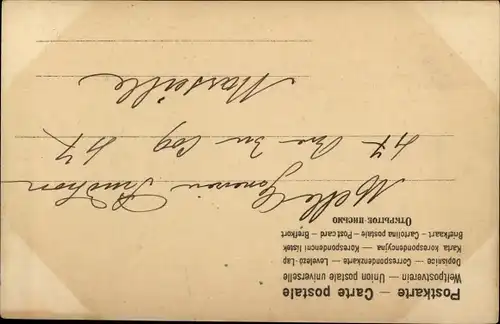 Postkarte — Carte postale
Weltpostverein — Union postale universelle
Dopisnice — Correspondenzkarte — Levelező-Lap
Karta korespondencyjna — Korespondencni listek
Briefkaart — Cartolina postale — Post card — Brefkort
ОТКРЫТОЕ ПИСЬМО
Melle
47 Rue du Coq 47
Marseille